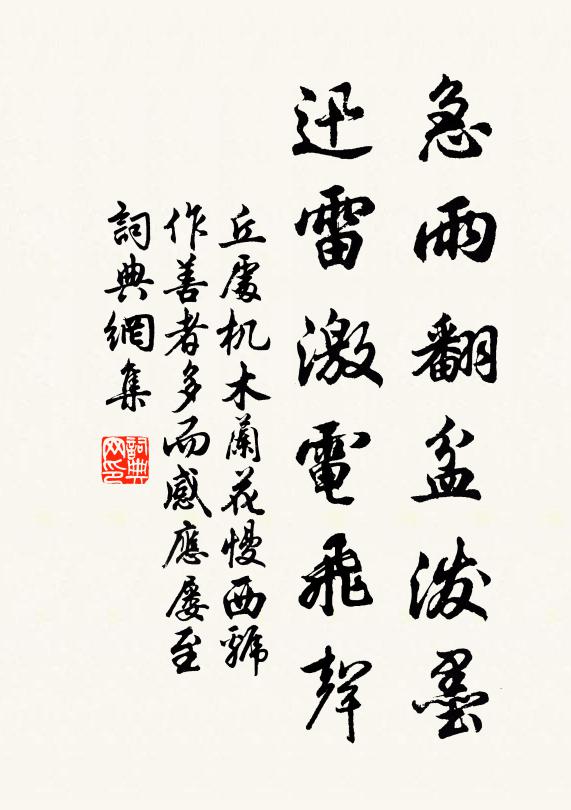 急雨翻盆泼墨
迅雷激電飛聲
丘處机木蘭花慢西虢
作善者多而感應屡至
詞典網集
詞典網印